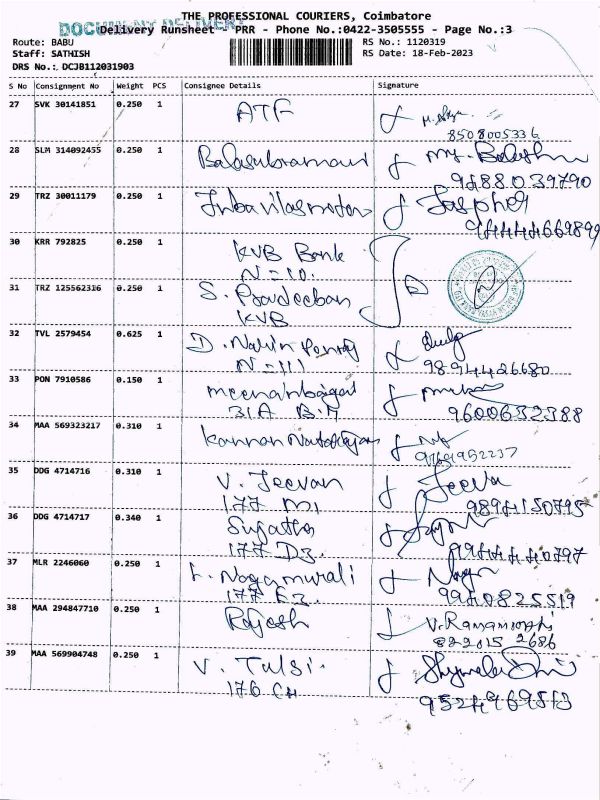 THE PROFESSIONAL COURIERS, Coimbatore
DOCUMENT DELIVERY
Delivery Runsheet - PRR - Phone No.:0422-3505555 - Page No.:3
Route: BABU RS No.: 1120319
Staff: SATHISH RS Date: 18-Feb-2023
DRS No.: DCJB112031903
S No Consignment No Weight PCS Consignee Details Signature
27 SVK 30141851 0.250 1 ATF
8508005336
28 SLM 314092455 0.250 1 Balasubramani
9688039790
29 TRZ 30011179 0.250 1
30 KRR 792825 0.250 1 KVB Bank
N=10.
31 TRZ 125562316 0.250 1 S. Pradeeban
KVB
32 TVL 2579454 0.625 1 D.
N=111
9894426680
33 PON 7910586 0.150 1
31A 9600632388
34 MAA 569323217 0.310 1 Kannan Natarajan
35 DDG 4714716 0.310 1 V. Jeevan Jeeva
177 M1 9894150795
36 DDG 4714717 0.340 1 Sujatha
177 D3.
37 MLR 2246060 0.250 1 Nagamurali
177 F3. 9940825519
38 MAA 294847710 0.250 1 Rajesh
39 MAA 569904748 0.250 1 V. Tulsi.
176 C4